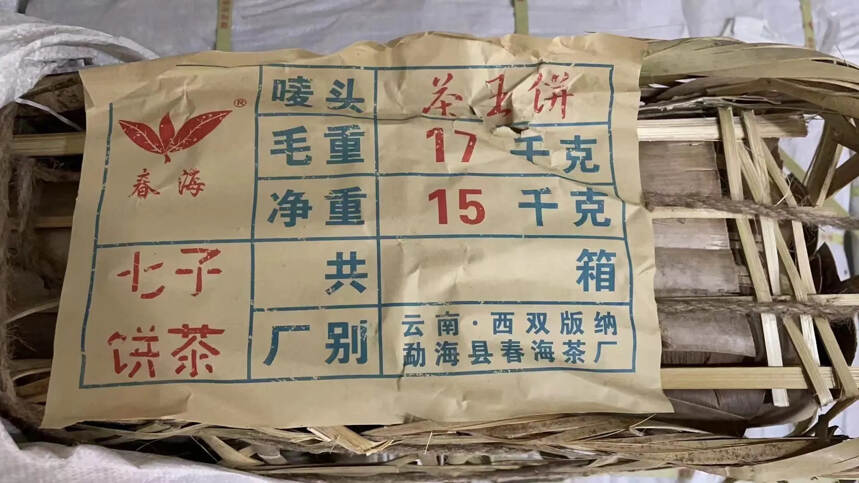 ®
春海
七子
饼茶
唛头 茶王饼
毛重 17 千克
净重 15 千克
共 箱
厂别 云南·西双版纳
勐海县春海茶厂